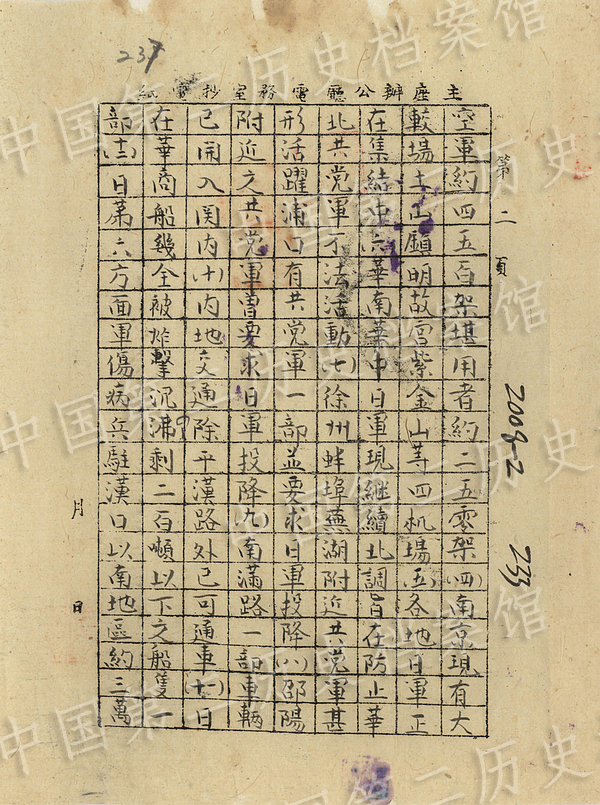 237
主座辦公廳電務室抄電紙
第二頁
空軍約四五百架堪用者約二五零架(四)南京現有大
較場土山鎮明故宮紫金山等四机場(五)各地日軍正
在集結中(六)華南華中日軍現継續北調旨在防止華
北共党軍不法活動(七)徐州蚌埠蕪湖附近共党軍甚
形活躍浦口有共党軍一部並要求日軍投降(八)邵陽
附近之共党軍曽要求日軍投降(九)南滿路一部車輌
已開入関内(十)内地交通除平漢路外已可通車(十一)日
在華商船幾全被炸擊沉沸剩二百噸以下之船隻一
部(十二)日第六方面軍傷病兵駐漢口以南地區約三萬
月 日
2009-2 233
中国第二历史档案馆